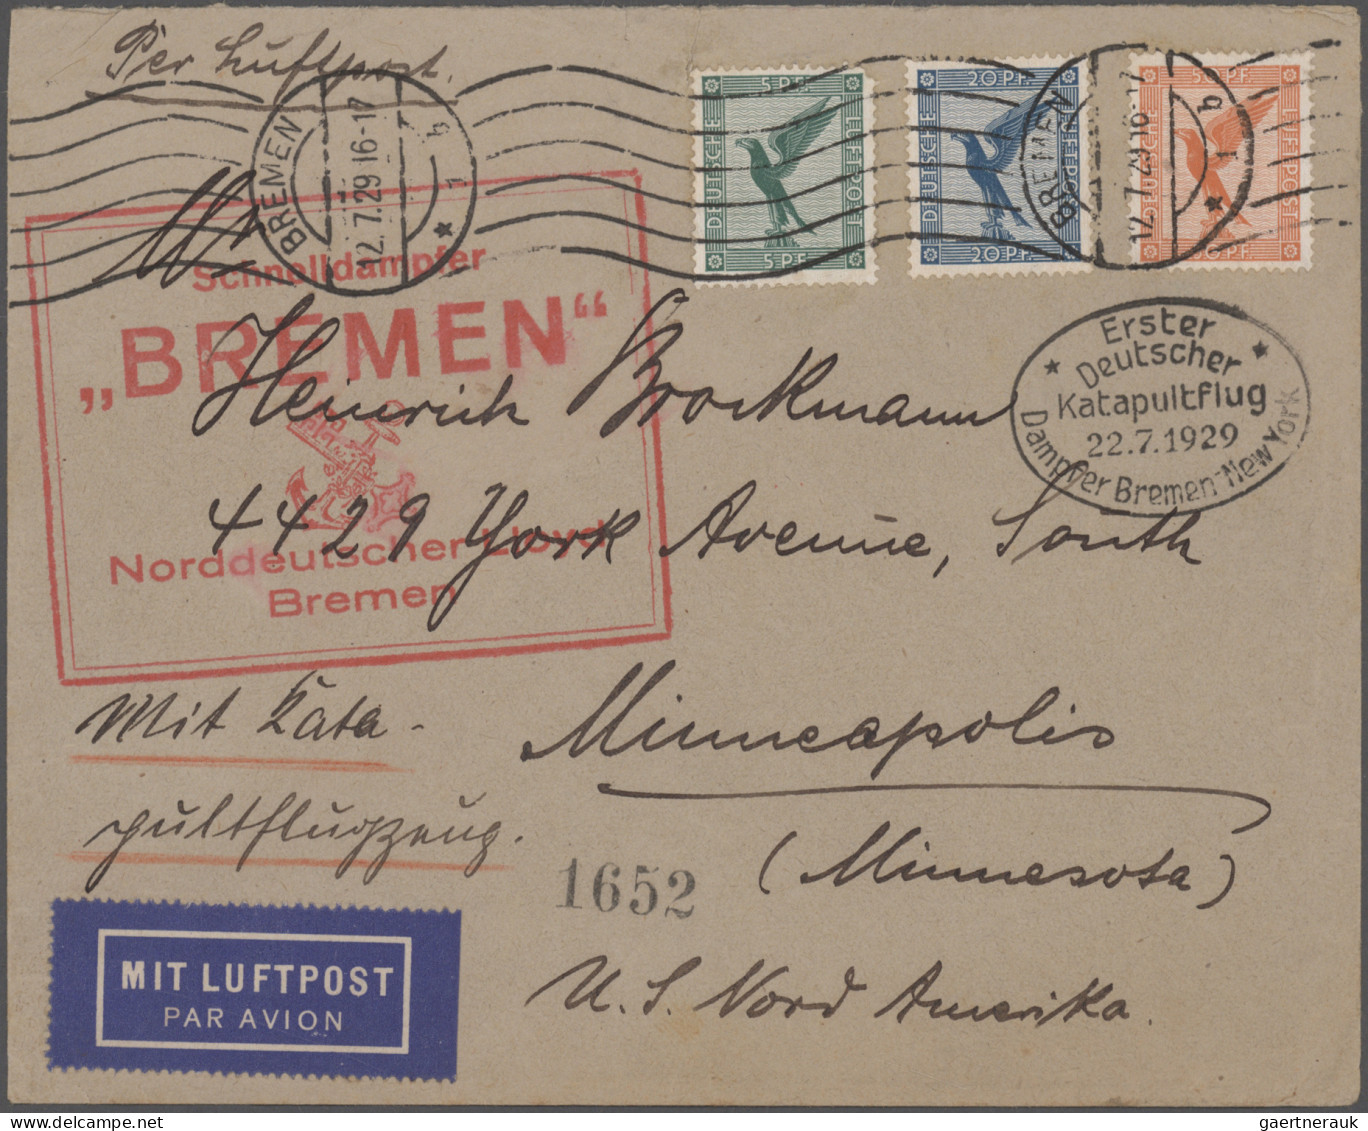 Per Luftpost.
BREMEN
12.7.29 16-17
b
1
5 PF.
DEUTSCHE
LUFTPOST
5 PF.
20 PF.
DEUTSCHE
LUFTPOST
20 PF.
BREMEN
12.7.29 16-17
b
1
DEUTSCHE
LUFTPOST
Schnelldampfer
„BREMEN“
Norddeutscher Lloyd
Bremen
Erster
Deutscher
Katapultflug
22.7.1929
Dampfer Bremen-New York
Heinrich Brockmann
4429 York Avenue, South
Minneapolis
(Minnesota)
U.S. Nord Amerika.
Mit Kata-
pultflugzeug.
1652
MIT LUFTPOST
PAR AVION
gaertnerauk